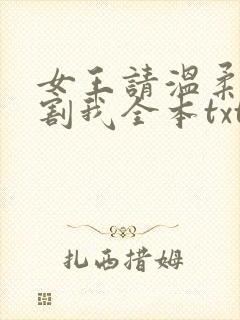 女王請溫柔
割我全本txt
扎西措姆